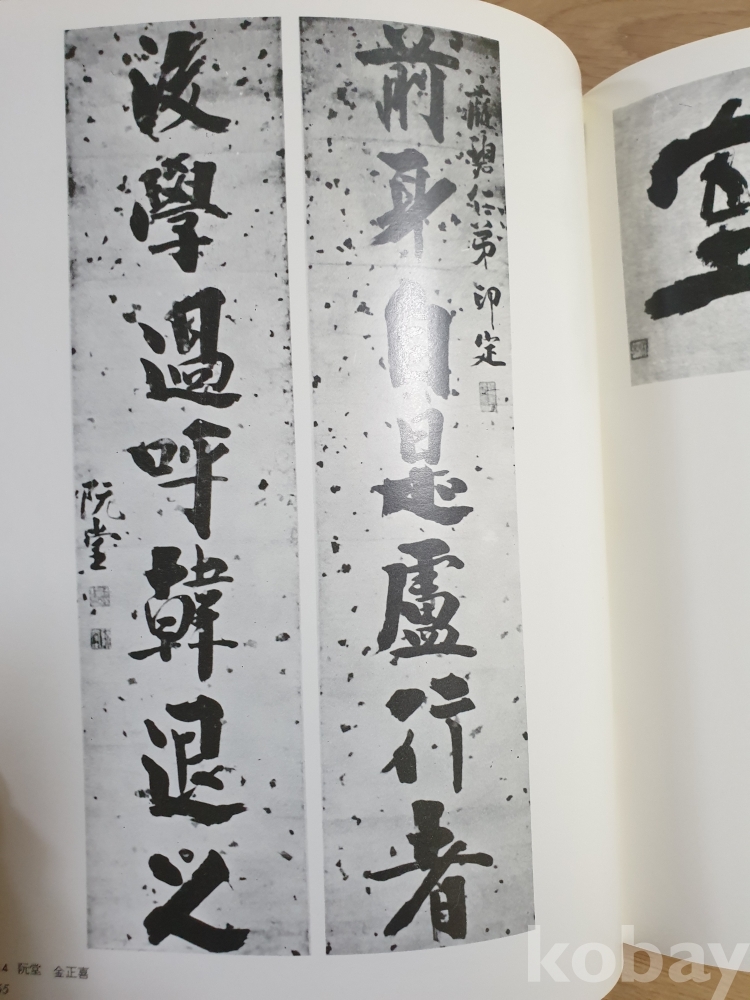 碧仁弟印定
前身自是盧行者
後學過呼韓退之
阮堂
4 阮堂 金正喜
kobay